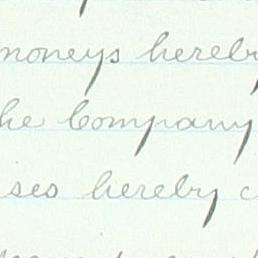 moneys hereby
he Company
ses hereby c